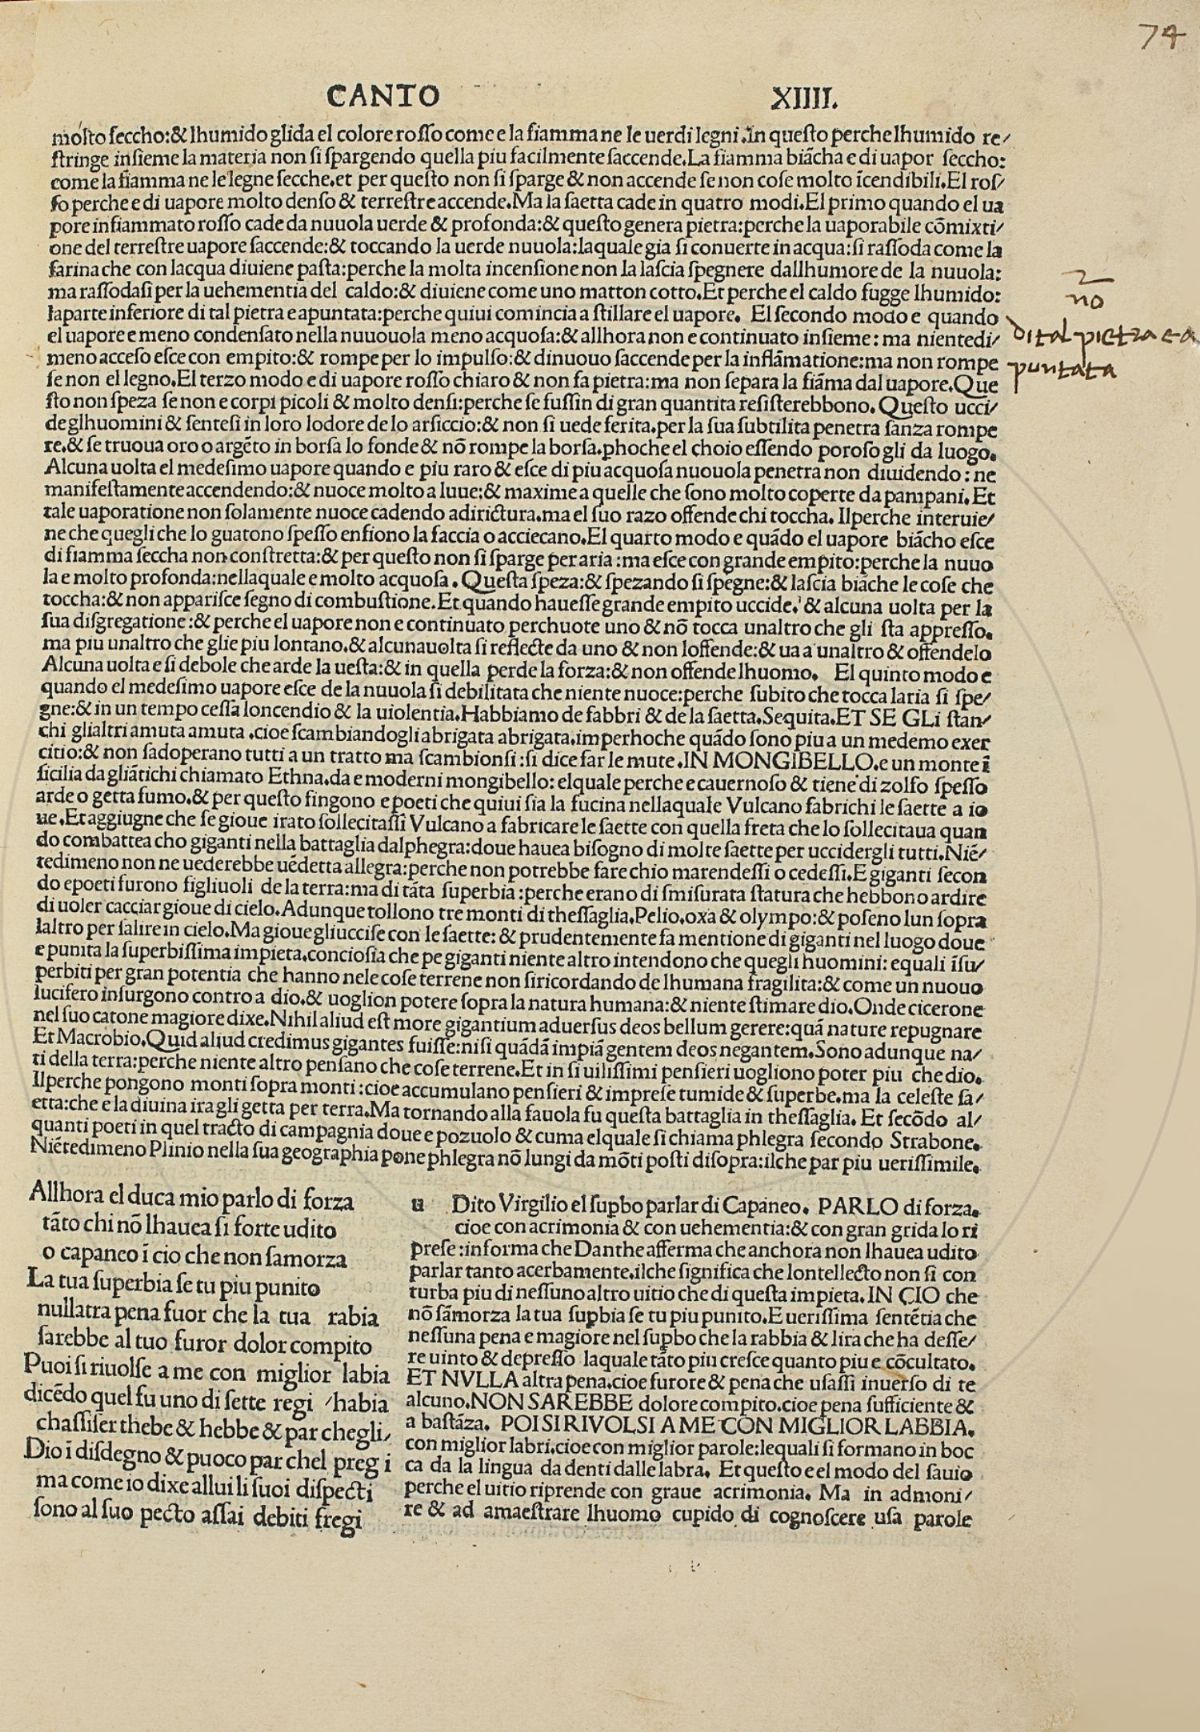 74
CANTO XIIII.
molto ſeccho:& lhumido glida el colore roſſo come e la fiamma ne le uerdi legni.In queſto perche lhumido re/
ſtringe inſieme la materia non ſi ſpargendo quella piu facilmente ſaccende.La fiamma biãcha e di uapor ſeccho:
come la fiamma ne le legne ſecche.et per queſto non ſi ſparge & non accende ſe non coſe molto ĩcendibili.El roſ/
ſo perche e di uapore molto denſo & terreſtre accende. Ma la ſaetta cade in quatro modi.El primo quando el ua
pore infiammato roſſo cade da nuuola uerde & profonda:& queſto genera pietra:perche la uaporabile cõmixti/
one del terreſtre uapore ſaccende:& toccando la uerde nuuola:laquale gia ſi conuerte in acqua:ſi raſſoda come la
farina che con lacqua diuiene paſta:perche la molta incenſione non la laſcia ſpegnere dallhumore de la nuuola:
ma raſſodaſi per la uehementia del caldo:& diuiene come uno matton cotto.Et perche el caldo fugge lhumido:
laparte inferiore di tal pietra e apuntata:perche quiui comincia a ſtillare el uapore. El ſecondo modo e quando
el uapore e meno condenſato nella nuuouola meno acquoſa:& allhora non e continuato inſieme: ma nientedi/
meno acceſo eſce con empito:& rompe per lo impulſo:& dinuouo ſaccende per la inflãmatione:ma non rompe
ſe non el legno.El terzo modo e di uapore roſſo chiaro & non fa pietra:ma non ſepara la fiãma dal uapore.Que
ſto non ſpeza ſe non e corpi picoli & molto denſi:perche ſe fuſſin di gran quantita reſiſterebbono.Queſto ucci/
de glhuomini & ſenteſi in loro lodore de lo arſiccio:& non ſi uede ferita.per la ſua ſubtilita penetra ſanza rompe
re.& ſe truoua oro o argẽto in borſa lo fonde & nõ rompe la borſa.ꝑhoche el choio eſſendo poroſo gli da luogo.
Alcuna uolta el medeſimo uapore quando e piu raro & eſce di piu acquoſa nuouola penetra non diuidendo: ne
manifeſtamente accendendo:& nuoce molto a luue:& maxime a quelle che ſono molto coperte da pampani. Et
tale uaporatione non ſolamente nuoce cadendo adirictura.ma el ſuo razo offende chi toccha. Ilperche interuie/
ne che quegli che lo guatono ſpeſſo enfiono la faccia o acciecano.El quarto modo e quãdo el uapore biãcho eſce
di fiamma ſeccha non conſtretta:& per queſto non ſi ſparge per aria :ma eſce con grande empito:perche la nuuo
la e molto profonda:nellaquale e molto acquoſa . Queſta ſpeza:& ſpezando ſi ſpegne:& laſcia biãche le coſe che
toccha:& non appariſce ſegno di combuſtione.Et quando haueſſe grande empito uccide.& alcuna uolta per la
ſua diſgregatione:& perche el uapore non e continuato perchuote uno & nõ tocca unaltro che gli ſta appreſſo.
ma piu unaltro che glie piu lontano.& alcunauolta ſi reflecte da uno & non loffende:& ua a unaltro & offendelo
Alcuna uolta e ſi debole che arde la ueſta:& in quella perde la forza:& non offende lhuomo. El quinto modo e
quando el medeſimo uapore eſce de la nuuola ſi debilitata che niente nuoce:perche ſubito che tocca laria ſi ſpe/
gne:& in un tempo ceſſa loncendio & la uiolentia.Habbiamo de fabbri & de la ſaetta.Sequita.ET SE GLI ſtan/
chi glialtri amuta amuta .cioe ſcambiandogli abrigata abrigata.imperhoche quãdo ſono piu a un medemo exer
citio:& non ſadoperano tutti a un tratto ma ſcambionſi :ſi dice far le mute.IN MONGIBELLO.e un monte ĩ
ſicilia da gliãtichi chiamato Ethna.da e moderni mongibello: elquale perche e cauernoſo & tiene di zolfo ſpeſſo
arde o getta fumo.& per queſto fingono e poeti che quiui ſia la fucina nellaquale Vulcano fabrichi le ſaette a io
ue.Et aggiugne che ſe gioue irato ſollecitaſſi Vulcano a fabricare le ſaette con quella freta che lo ſollecitaua quan
do combattea cho giganti nella battaglia dalphegra:doue hauea biſogno di molte ſaette per uccidergli tutti.Niẽ/
tedimeno non ne uederebbe uẽdetta allegra:perche non potrebbe fare chio marendeſſi o cedeſſi.E giganti ſecon
do epoeti furono figliuoli de la terra:ma di tãta ſuperbia :perche erano di ſmiſurata ſtatura che hebbono ardire
di uoler cacciar gioue di cielo.Adunque tollono tre monti di theſſaglia.Pelio.oxa & olympo:& poſeno lun ſopra
laltro per ſalire in cielo.Ma gioue gliucciſe con le ſaette: & prudentemente fa mentione di giganti nel luogo doue
e punita la ſuperbiſſima impieta.concioſia che pe giganti niente altro intendono che quegli huomini: equali ĩſu/
perbiti per gran potentia che hanno nele coſe terrene non ſiricordando de lhumana fragilita:& come un nuouo
lucifero inſurgono contro a dio.& uoglion potere ſopra la natura humana:& niente ſtimare dio.Onde cicerone
nel ſuo catone magiore dixe.Nihil aliud eſt more gigantium aduerſus deos bellum gerere:quã nature repugnare
Et Macrobio.Quid aliud credimus gigantes fuiſſe:niſi quãdã impiã gentem deos negantem.Sono adunque na/
ti della terra:perche niente altro penſano che coſe terrene.Et in ſi uiliſſimi penſieri uogliono poter piu che dio.
Ilperche pongono monti ſopra monti:cioe accumulano penſieri & impreſe tumide & ſuperbe.ma la celeſte ſa/
etta:che e la diuina ira gli getta per terra.Ma tornando alla fauola fu queſta battaglia in theſſaglia. Et ſecõdo al/
quanti poeti in quel tracto di campagnia doue e pozuolo & cuma elquale ſi chiama phlegra ſecondo Strabone.
Niẽtedimeno Plinio nella ſua geographia pone phlegra nõ lungi da mõti poſti diſopra:ilche par piu ueriſſimile.
no
dital pietra ea
puntata
Allhora el duca mio parlo di forza
tãto chi nõ lhauea ſi forte udito
o capaneo ĩ cio che non ſamorza
La tua ſuperbia ſe tu piu punito
nullatra pena fuor che la tua rabia
ſarebbe al tuo furor dolor compito
Puoi ſi riuolſe a me con miglior labia
dicẽdo quel fu uno di ſette regi /habia
chaſſiſer thebe & hebbe & par chegli/
Dio i diſdegno & puoco par chel pregi
ma come io dixe allui li ſuoi diſpecti
ſono al ſuo pecto aſſai debiti fregi
u Dito Virgilio el ſupbo parlar di Capaneo. PARLO di forza.
cioe con acrimonia & con uehementia:& con gran grida lo ri
preſe:informa che Danthe afferma che anchora non lhauea udito
parlar tanto acerbamente.ilche ſignifica che lontellecto non ſi con
turba piu di neſſuno altro uitio che di queſta impieta. IN CIO che
nõ ſãmorza la tua ſupbia ſe tu piu punito.E ueriſſima ſentẽtia che
neſſuna pena e magiore nel ſupbo che la rabbia & lira che ha deſſe/
re uinto & depreſſo laquale tãto piu creſce quanto piu e cõcultato.
ET NVLLA altra pena.cioe furore & pena che uſaſſi inuerſo di te
alcuno.NON SAREBBE dolore compito.cioe pena ſufficiente &
a baſtãza. POI SI RIVOLSI A ME CON MIGLIOR LABBIA.
con miglior labri.cioe con miglior parole:lequali ſi formano in boc
ca da la lingua da denti dalle labra. Et queſto e el modo del ſauio
perche el uitio riprende con graue acrimonia. Ma in admoni/
re & ad amaeſtrare lhuomo cupido di cognoſcere uſa parole